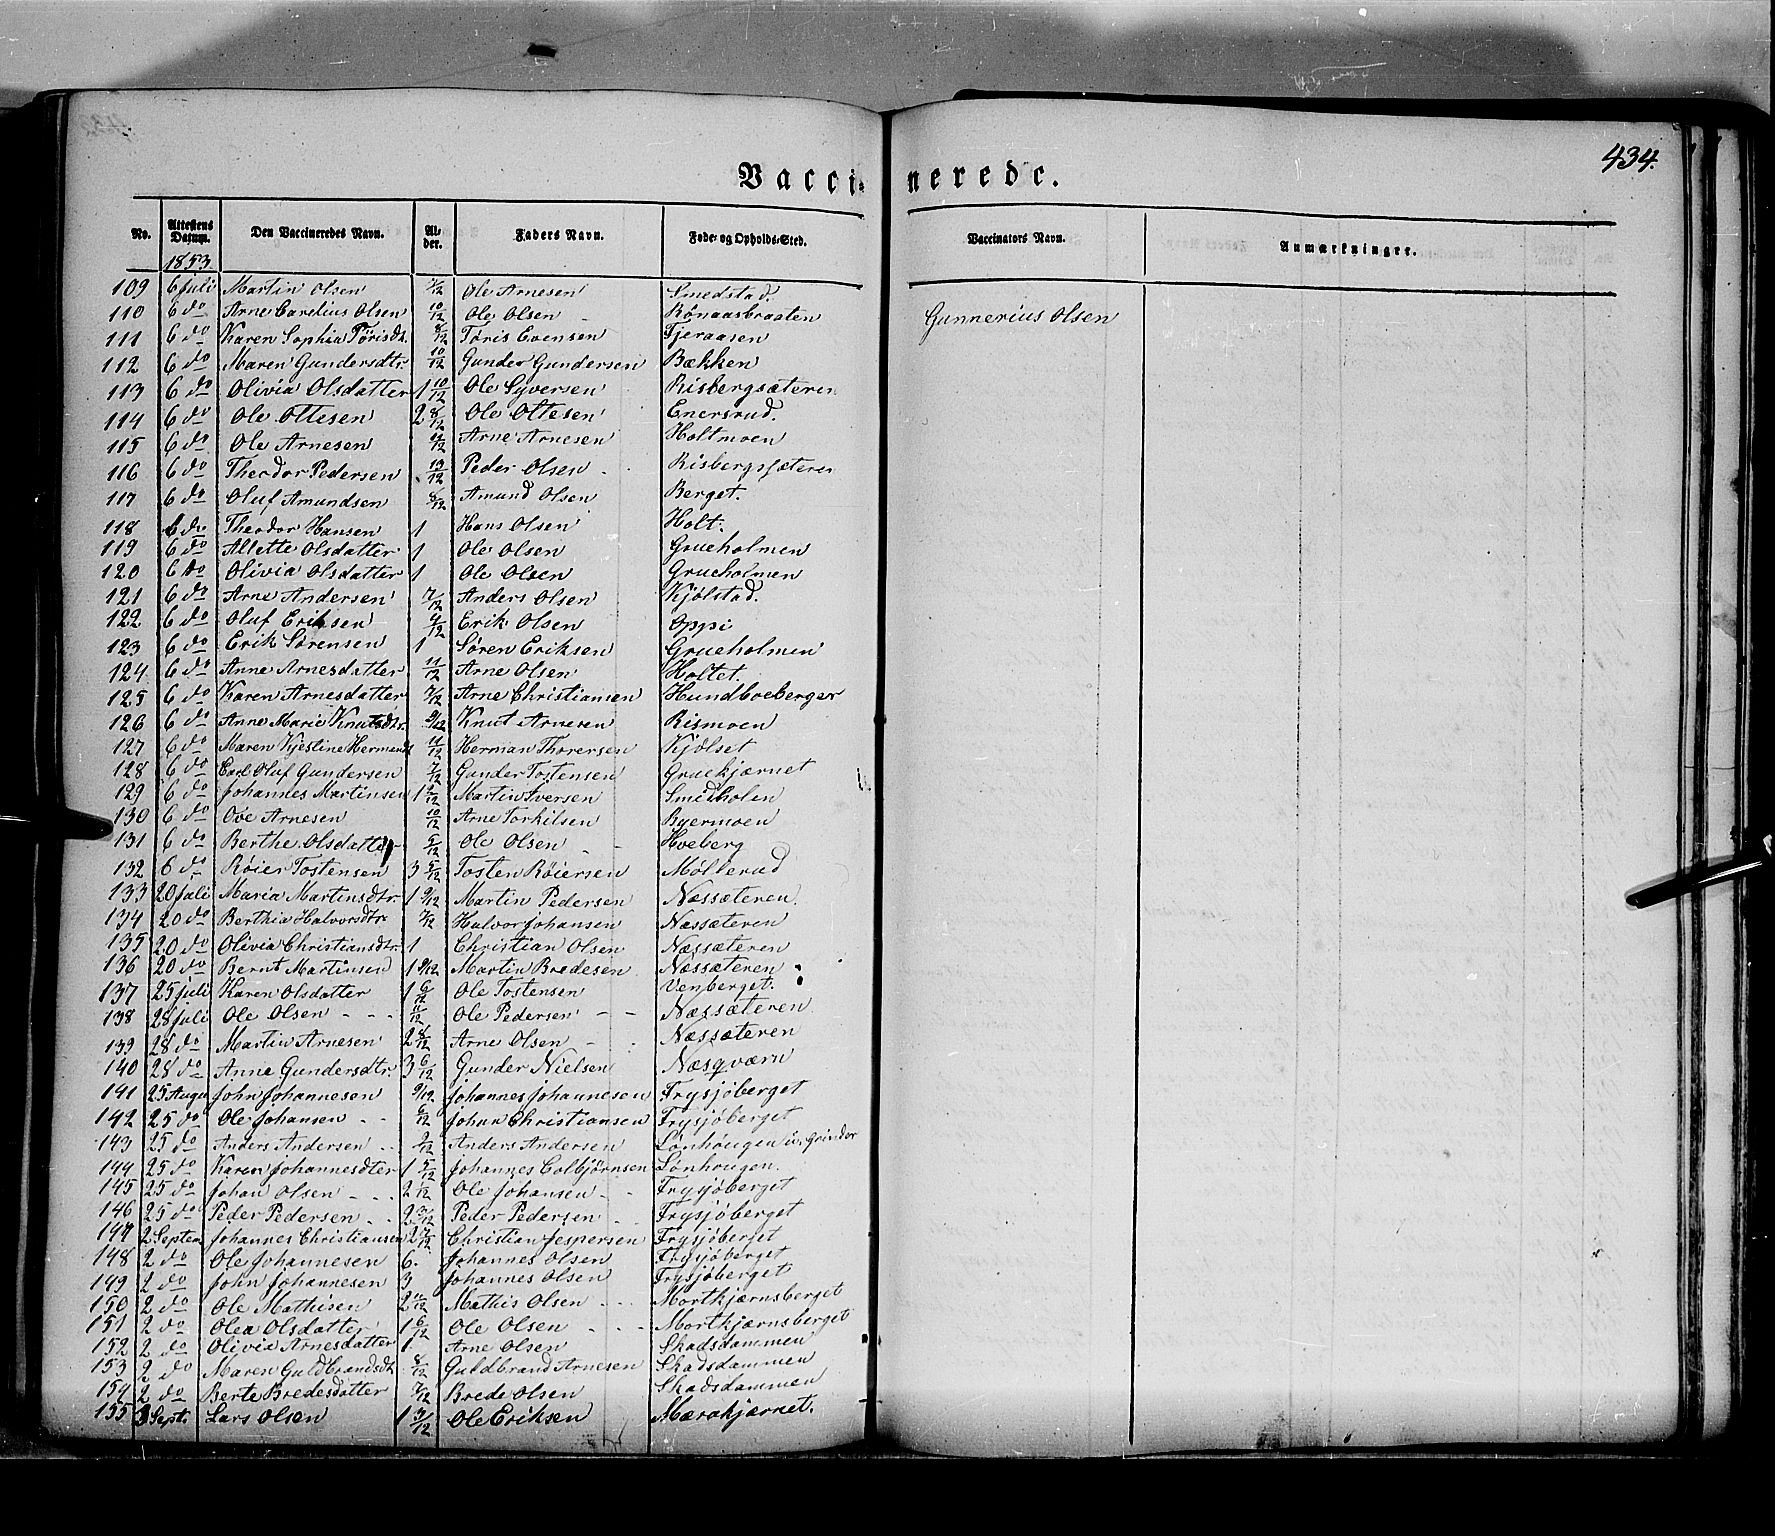 434.
Vaccinerede.
No. Attestens Datum. Den Vaccineredes Navn. Alder. Faders Navn. Føde- og Opholds-Sted. Vaccinators Navn. Anmærkninger.
1853.
109 6 Juli Martin Olsen Ole Arnesen Smedstad.
110 6 do Arne Carelius Olsen 10/12 Ole Olsen Rønaasbraaten Gunnerius Olsen
111 6 do Karen Sophia Tørisdt. 8/12 Tøris Evensen Fjeraasen
112 6 do Maren Gundersdtr. 10/12 Gunder Gundersen Bækken
113 6 do Olivia Olsdatter 1 10/12 Ole Syversen Risbergsæteren
114 6 do Ole Ottesen 2 8/12 Ole Ottesen Enersrud.
115 6 do Ole Arnesen 11/12 Arne Arnesen Holtmoen
116 6 do Theodor Pedersen 10/12 Peder Olsen Risbergsæteren
117 6 do Oluf Amundsen 8/12 Amund Olsen Berget.
118 6 do Theodor Hansen 1 Hans Olsen Holt.
119 6 do Allette Olsdatter 1 Ole Olsen Grueholmen
120 6 do Olivia Olsdatter 1 Ole Olsen Grueholmen
121 6 do Arne Andersen 7/12 Anders Olsen Kjølstad.
122 6 do Oluf Eriksen 9/12 Erik Olsen Oppi
123 6 do Erik Sørensen 1 Søren Eriksen Grueholmen
124 6 do Anne Arnesdatter 11/12 Arne Olsen Holtet.
125 6 do Karen Arnesdatter 7/12 Arne Christiansen Hundboeberger
126 6 do Anne Marie Knutsdtr. 9/12 Knut Arnesen Rismoen
127 6 do Maren Kjestine Hermansd 11/12 Herman Thorersen Kjølset
128 6 do Carl Oluf Gundersen 7/12 Gunder Tostensen Gruekjærnet
129 6 do Johannes Martinsen 1 Martin Iversen Smedholen
130 6 do Ove Arnesen 10/12 Arne Torkilsen Byermoen
131 6 do Berthe Olsdatter 5/12 Ole Olsen Hoeberg
132 6 do Røier Tostensen 3 5/12 Tosten Røiersen Møllerud
133 20 Juli Maria Martinsdtr. 1 9/12 Martin Pedersen Næssæteren
134 20 do Berthia Halvorsdtr. Halvor Johansen Næssæteren
135 20 do Olivia Christiansdtr. 1 Christian Olsen Næssæteren
136 20 do Bernt Martinsen 1 9/12 Martin Bredesen Næssæteren
137 25 Juli Karen Olsdatter 1 6/12 Ole Tostensen Venberget.
138 28 Juli Ole Olsen 11/12 Ole Pedersen Næssæteren
139 28 do Martin Arnesen 2 8/12 Arne Olsen Næssæteren
140 28 do Anne Gundersdtr. 3 6/12 Gunder Nielsen Næsqværn
141 25 Augu John Johannesen 9/12 Johannes Johannesen Frysjöberget
142 25 do Ole Johansen 6/12 Johan Christiansen Frysjöberget
143 25 do Anders Andersen Anders Andersen Lønhougen u. Grinder
144 25 do Karen Johannesdter 1 5/12 Johannes Colbjørnsen Lønhougen.
145 25 do Johan Olsen 2 Ole Johansen Frysjöberget
146 25 do Peder Pedersen 2 3/12 Peder Pedersen Frysjöberget
147 2 Septem Johannes Christiansen 2 7/12 Christian Jespersen Frysjöberget
148 2 do Ole Johannesen 6. Johannes Olsen Frysjöberget
149 2 do John Johannesen 3 Johannes Olsen Frysjöberget
150 2 do Ole Mathisen 2 Mathis Olsen Mortkjærnsberget
151 2 do Olea Olsdatter 1 6/12 Ole Olsen Mortkjærnsberget
152 2 do Olivia Arnesdatter 1. Arne Olsen Skadsdammen
153 2 do Maren Guldbrandsdt. 8/12 Guldbrand Arnesen Skadsdammen
154 2 do Berte Bredesdatter 7/12 Brede Olsen Skadsdammen
155 3 Sept. Lars Olsen 1 3/12 Ole Eriksen Mærakjærnet.